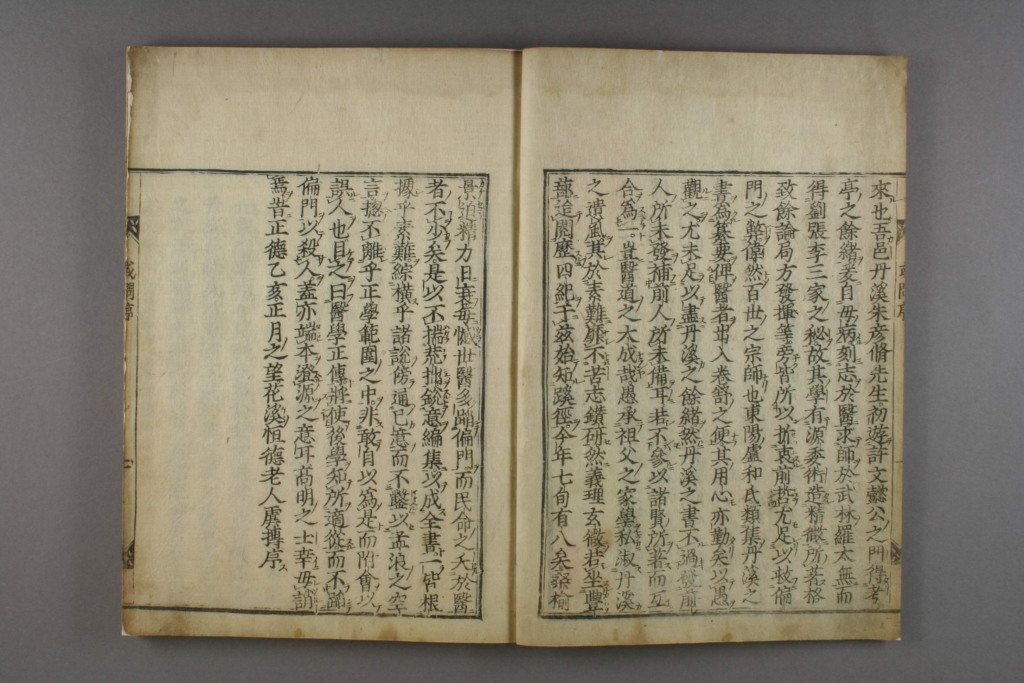 來也吾邑丹溪朱彦脩先生初遊許文懿公之門得考
亭之餘緒奉自母病刻志於醫求師於武林羅太無而
得劉張李三家之秘故其學有源委術造精微所著格
致餘論局方發揮等旁皆所以折衷前哲尤足以救偏
門之弊偉然百世之宗師也東陽盧和氏類集丹溪之
書為纂要俾醫者出入卷舒之便其用心亦勤矣以愚
觀之尤未足以盡丹溪之餘緒然丹溪之書不過發前
人所未發補前人所未備耳若不參以諸賢所著而互
合為一豈醫道之大成哉愚承祖父之家學私淑丹溪
之遺風其於素難靡不苦志鑽研然義理玄微若坐豐
蔀迨閱歴四紀于兹始知蹊徑今年七旬有八矣桑榆
景迫精力日衰每憾世醫多蹈偏門而民命之夭於醫
者不少矣是以不揣荒拙銳意編集以成全書一皆根
據乎素難綜横乎諸說傍通己意而不鑿以孟浪之空
言揔不離乎正學範圍之中非敢自以為是而附會以
誤人也目之曰醫學正傳將使後學知所適從而不蹈
偏門以殺人蓋亦端本澄源之意耳高明之士幸毋誚
焉昔正德乙亥正月之望花溪恒德老人虞摶序